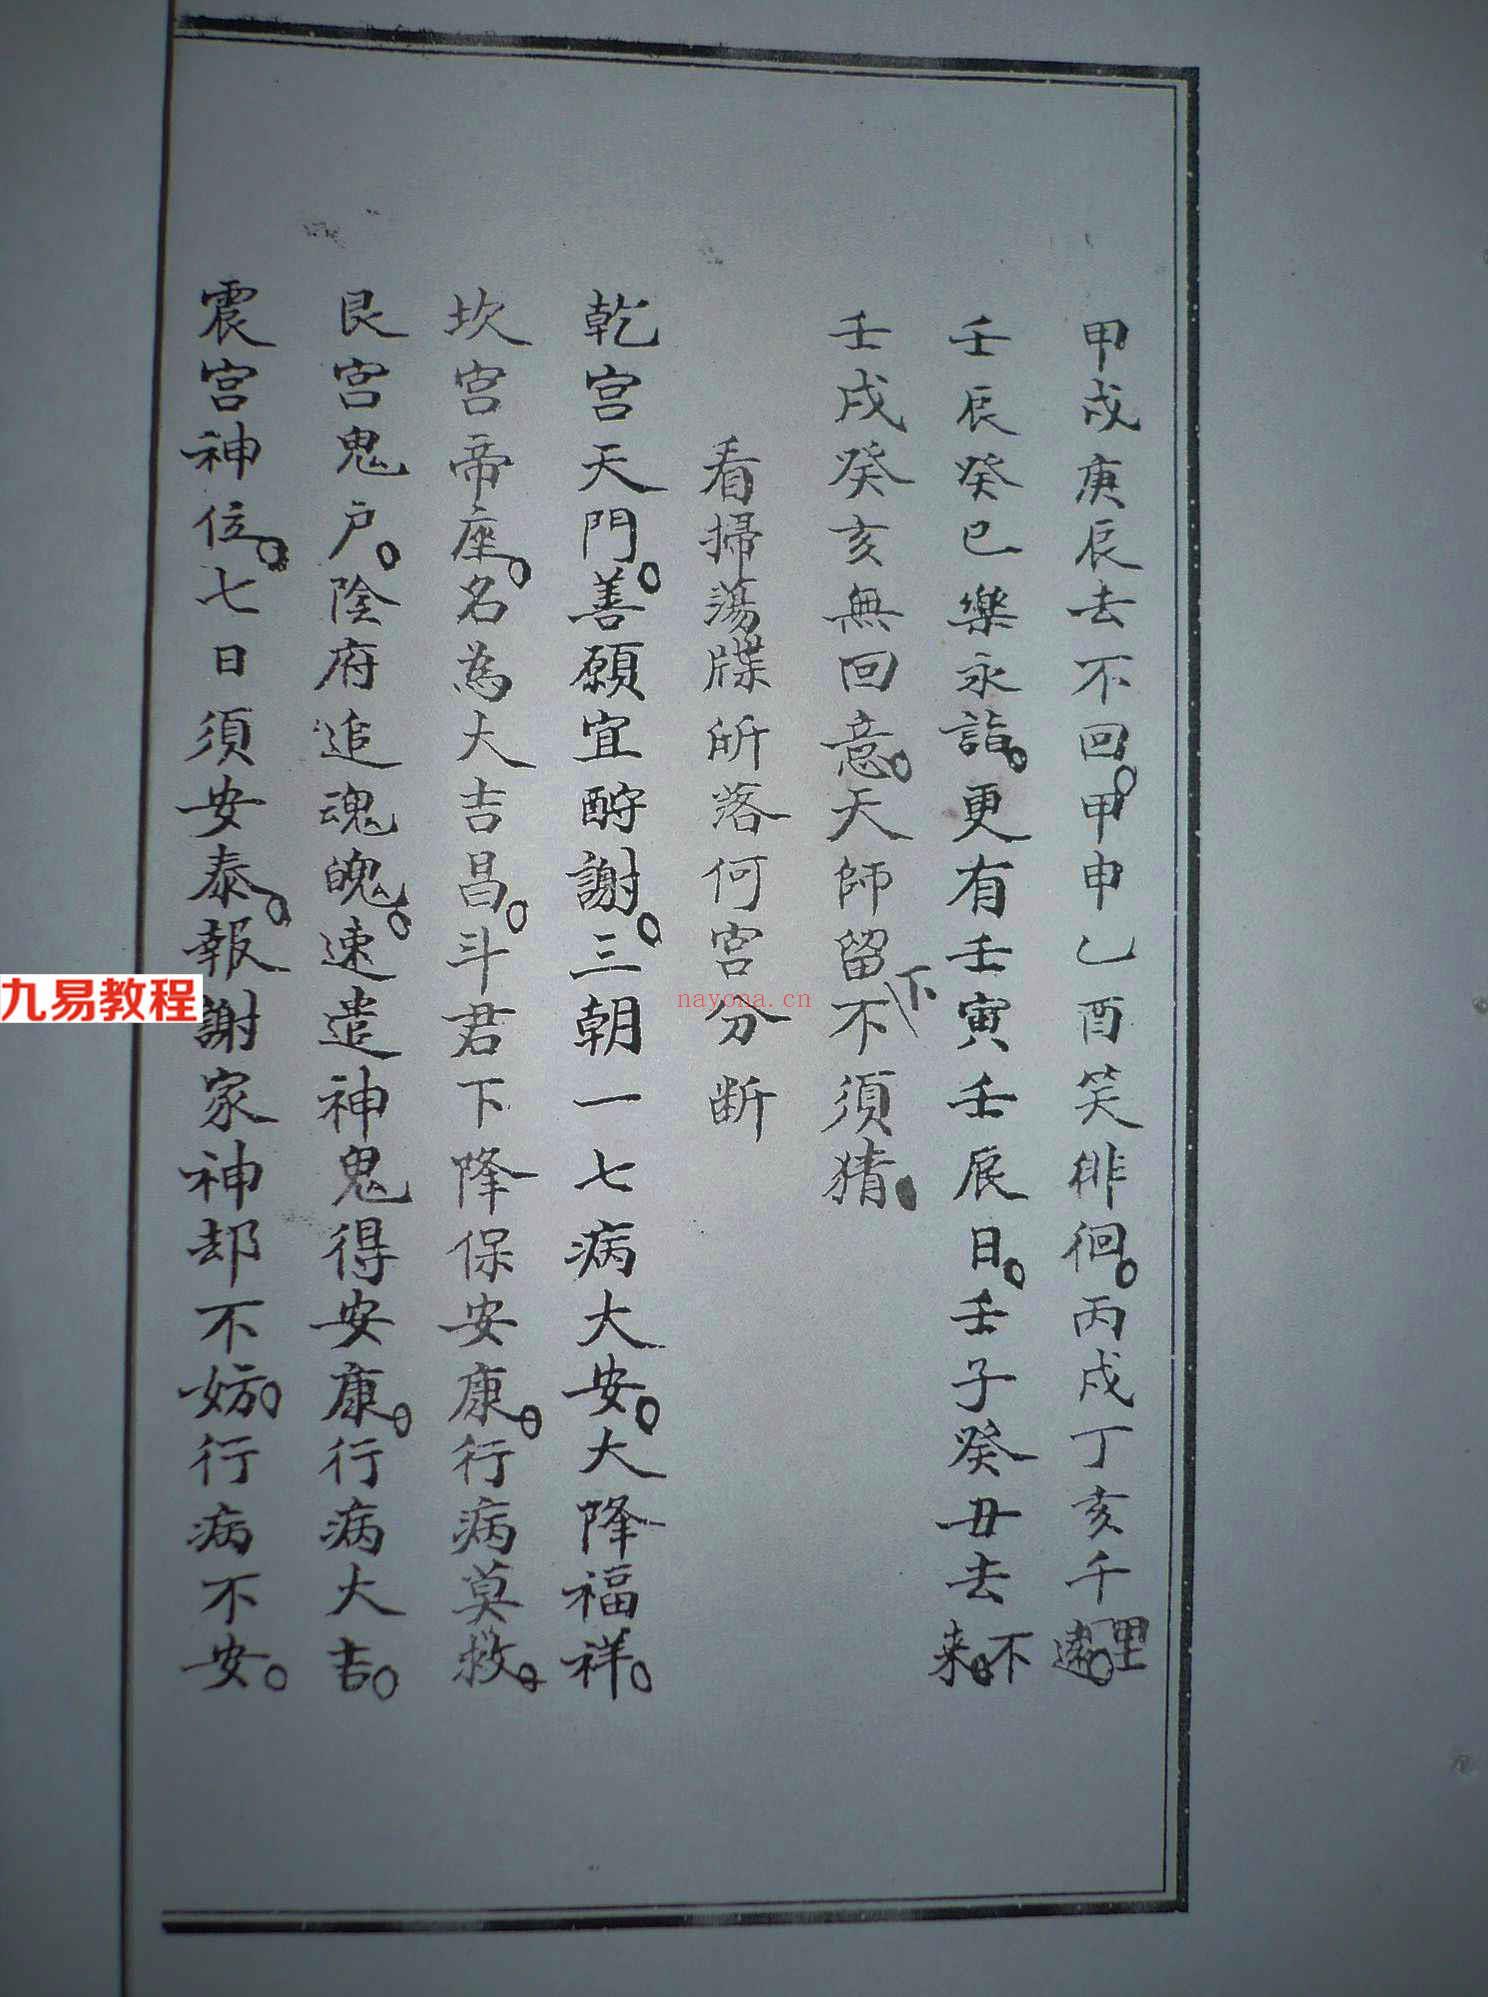 甲戌庚辰去不回。甲申乙酉笑徘徊。丙戌丁亥千里遠。
壬辰癸巳樂永詣。更有壬寅壬辰日。壬子癸丑去不来。
壬戌癸亥無回意。天師留下不須猜。
看掃蕩牒所落何宮分断
乾宮天門。善願宜酧謝。三朝一七病大安。大降福祥。
坎宮帝座。名為大吉昌。斗君下降保安康。行病莫救。
艮宮鬼户。陰府追魂魄。速遣神鬼得安康。行病大吉。
震宮神位。七日須安泰。報謝家神却不妨。行病不安。
九易教程
nayona.cn